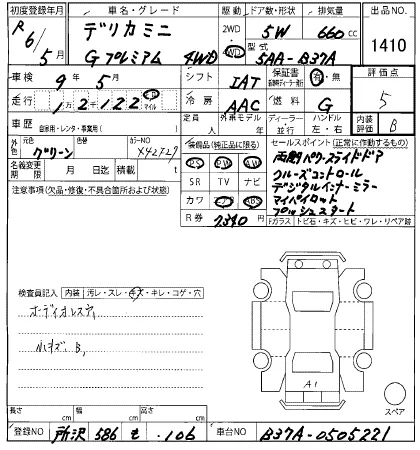 初度登録年月
車名・グレード
駆動
ドア数・形状
排気量
出品NO
R6/5月
デリカミニ
Gプレミアム 4WD
2WD
4WD
5W
660cc
型式
5AA-B37A
1410
車検 9年5月
シフト IAT
保証書 有・無
評価点
5
走行 12122 km マイル
冷房 AAC
燃料 G
車歴 自家用・レンタ・事業用( )
定員 人
外車モデル 年
ディーラー・並行
ハンドル 左・右
内装 B
外色 グリーン
色替
カラーNO X42727
装備品(純正品に限る)
PS PW
SR TV ナビ
カワ エアB ABS
R券 7340円
セールスポイント(正常に作動するもの)
両側パワースライドドア
クルーズコントロール
デジタルインナーミラー
マイパイロット
プッシュスタート
Fガラス トビ石・キズ・ヒビ・ワレ・リペア跡
名義変更期限 月 日迄
積載 t
注意事項(欠品・修復・不具合箇所および状態)
検査員記入 内装 汚レ・スレ・キズ・キレ・コゲ・穴
オーディオレス
小キズ B
A1
スペア
長さ cm
幅 cm
高さ cm
登録NO 所沢 586 も ・106
車台NO B37A-0505221